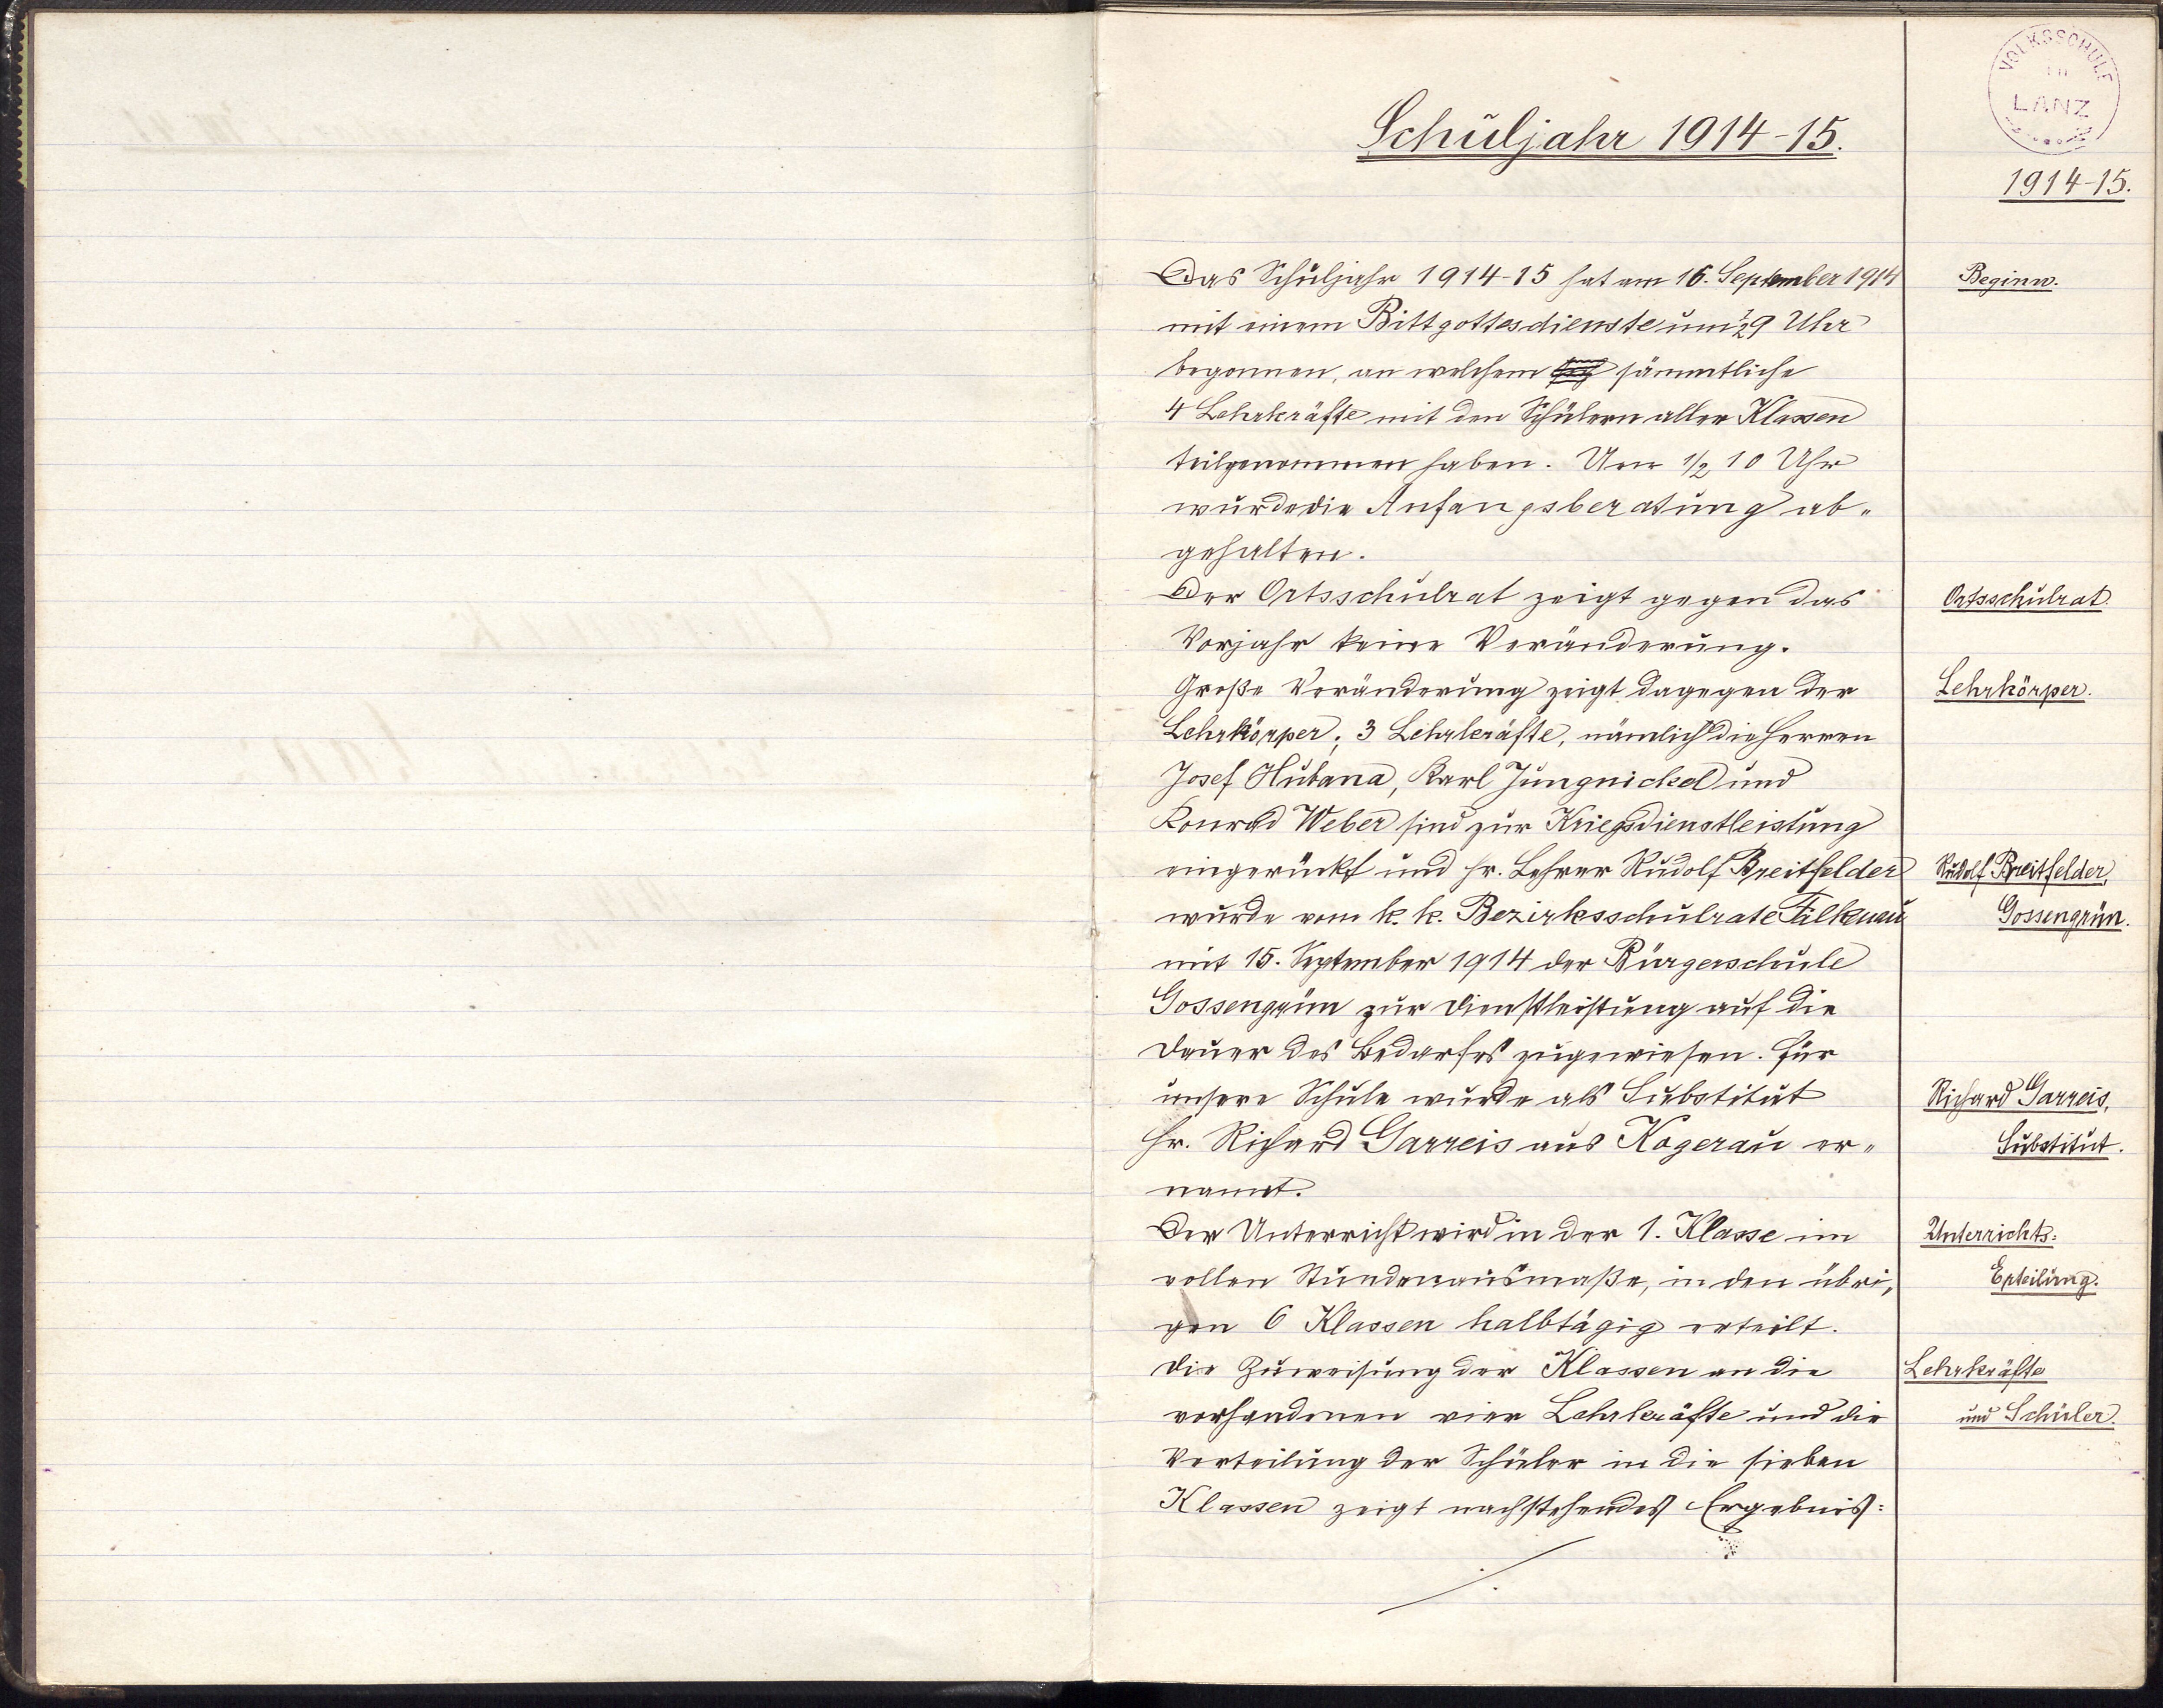 VOLKSSCHULE
in
LANZ
Schuljahr 1914-15.
1914-15.
Das Schuljahr 1914-15 hat am 16. September 1914
Beginn.
mit einem Bittgottesdienste um ½9 Uhr
begonnen, an welchem sämmtliche
4 Lehrkräfte mit den Schülern aller Klassen
teilgenommen haben. Um ½ 10 Uhr
wurde die Anfangsberatung ab-
gehalten.
Der Ortsschulrat zeigt gegen das
Ortsschulrat.
Vorjahr keine Veränderung.
Große Veränderung zeigt dagegen der
Lehrkörper.
Lehrkörper; 3 Lehrkräfte, nämlich die Herren
Josef Hubana, Karl Jungnickel und
Konrad Weber sind zur Kriegsdienstleistung
eingerückt und Hr. Lehrer Rudolf Breitfelder
Rudolf Breitfelder,
wurde vom k. k. Bezirksschulrate Falkenau
Gossengrün.
mit 15. September 1914 der Bürgerschule
Gossengrün zur Dienstleistung auf die
Dauer des Bedarfes zugewiesen. Für
unsere Schule wurde als Substitut
Richard Garreis,
Hr. Richard Garreis aus Kogerau er-
Substitut.
nannt.
Der Unterricht wird in der 1. Klasse im
Unterrichts-
vollen Stundenausmaße, in den übri-
Erteilung.
gen 6 Klassen halbtägig erteilt.
Die Zuweisung der Klassen an die
Lehrkräfte
vorhandenen vier Lehrkräfte und die
und Schüler.
Verteilung der Schüler in die sieben
Klassen zeigt nachstehendes Ergebnis:
./.